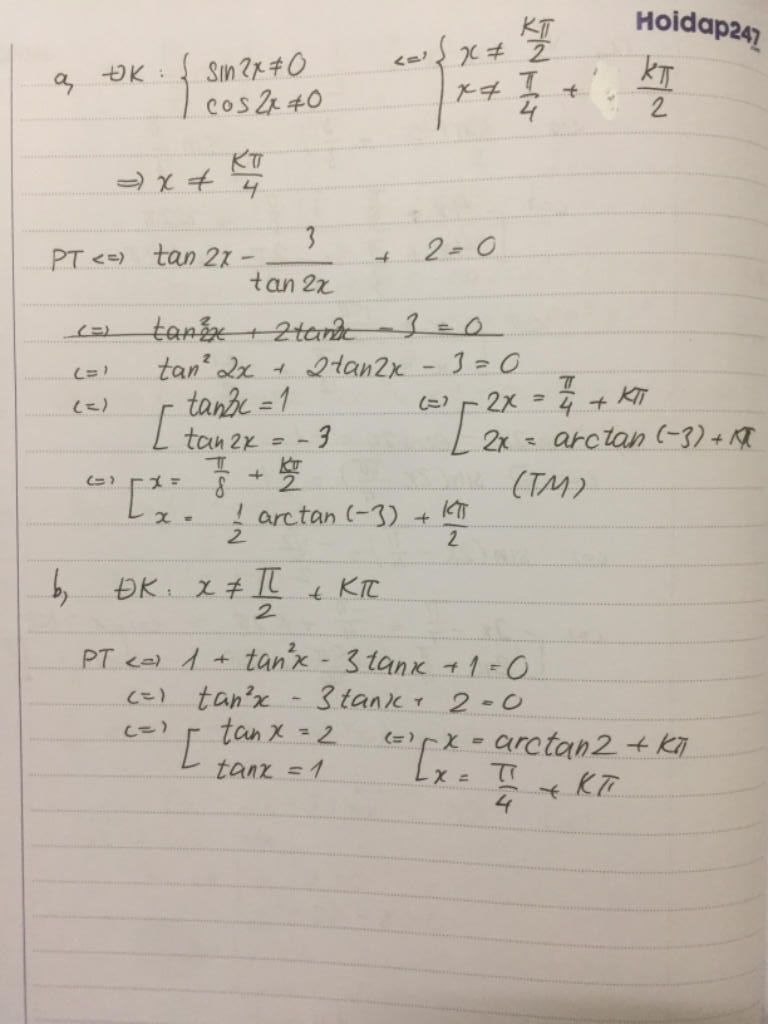 Hoidap247
a, ĐK : { sin2x ≠ 0 <=> { x ≠ Kπ/2
cos2x ≠ 0 x ≠ π/4 + kπ/2
=> x ≠ Kπ/4
PT <=> tan 2x - 3/tan 2x + 2 = 0
<=> tan²2x + 2tan2x - 3 = 0
<=> tan² 2x + 2tan2x - 3 = 0
<=> [ tan2x = 1 <=> [ 2x = π/4 + Kπ
tan2x = -3 2x = arctan(-3) + Kπ
<=> [ x = π/8 + Kπ/2 (TM)
x = 1/2 arctan(-3) + Kπ/2
b, ĐK : x ≠ π/2 + Kπ
PT <=> 1 + tan²x - 3tanx + 1 = 0
<=> tan²x - 3tanx + 2 = 0
<=> [ tanx = 2 <=> [ x = arctan2 + Kπ
tanx = 1 x = π/4 + Kπ